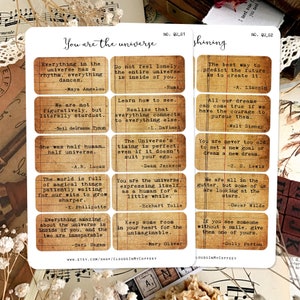 NO. Q2_01
NO. Q2_02
You are the universe
shining
Everything in the
universe has a
rhythm, everything
dances.
-Maya Angelou
Do not feel lonely,
the entire universe
is inside of you.
-Rumi
The best way
to predict the future
is to create it.
-A. Lincoln
We are not
figuratively, but
literally stardust.
-Neil deGrasse Tyson
Learn how to see.
Realize that
everything connects
to everything else.
-L. DaVinci
All our dreams
can come true if we
have the courage
to pursue them.
-Walt Disney
She was half human,
half universe.
The Universe's
timing is perfect,
even if it doesn't
suit your ego.
You are never too old
to set a new goal or
dream a new dream.
The world is full
of magical things
patiently waiting
for our wits to grow
sharper.
You are the universe,
expressing itself
as a human for a
little while.
-Eckhart Tolle
We are all in the
gutter, but some of us
are looking at the
stars.
-Oscar Wilde
Everything amazing
about the universe is
inside of you, and the
two are inseparable
Keep some room
in your heart for the
unimaginable.
-Mary Oliver
If you see someone
without a smile, give
them one of yours.
-Dolly Parton